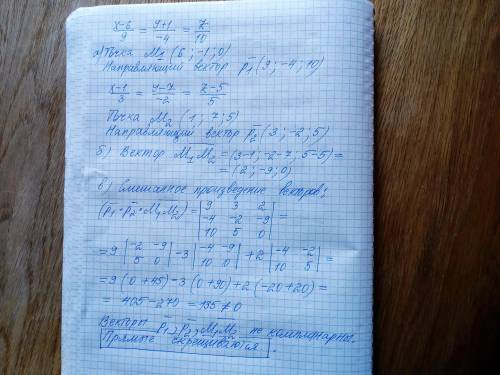 (x-6)/9 = (y+1)/-4 = z/10
а) Точка M₁ (6; -1; 0)
Направляющий вектор p̄₁ (9; -4; 10)
(x-1)/3 = (y-7)/-2 = (z-5)/5
Точка M₂ (1; 7; 5)
Направляющий вектор p̄₂ (3; -2; 5)
б) Вектор M₁M₂ = (3-1; -2-7; 5-5) =
= (2; -9; 0)
в) Смешанное произведение векторов:
(p̄₁·p̄₂·M₁M₂) = |9 3 2|
|-4 -2 -9| =
|10 5 0|
= 9 |-2 -9; 5 0| - 3 |-4 -9; 10 0| + 2 |-4 -2; 10 5| =
= 9 (0+45) - 3 (0+90) + 2 (-20+20) =
= 405 - 270 = 135 ≠ 0
Векторы p̄₁, p̄₂, M₁M₂ не компланарны.
Прямые скрещиваются.